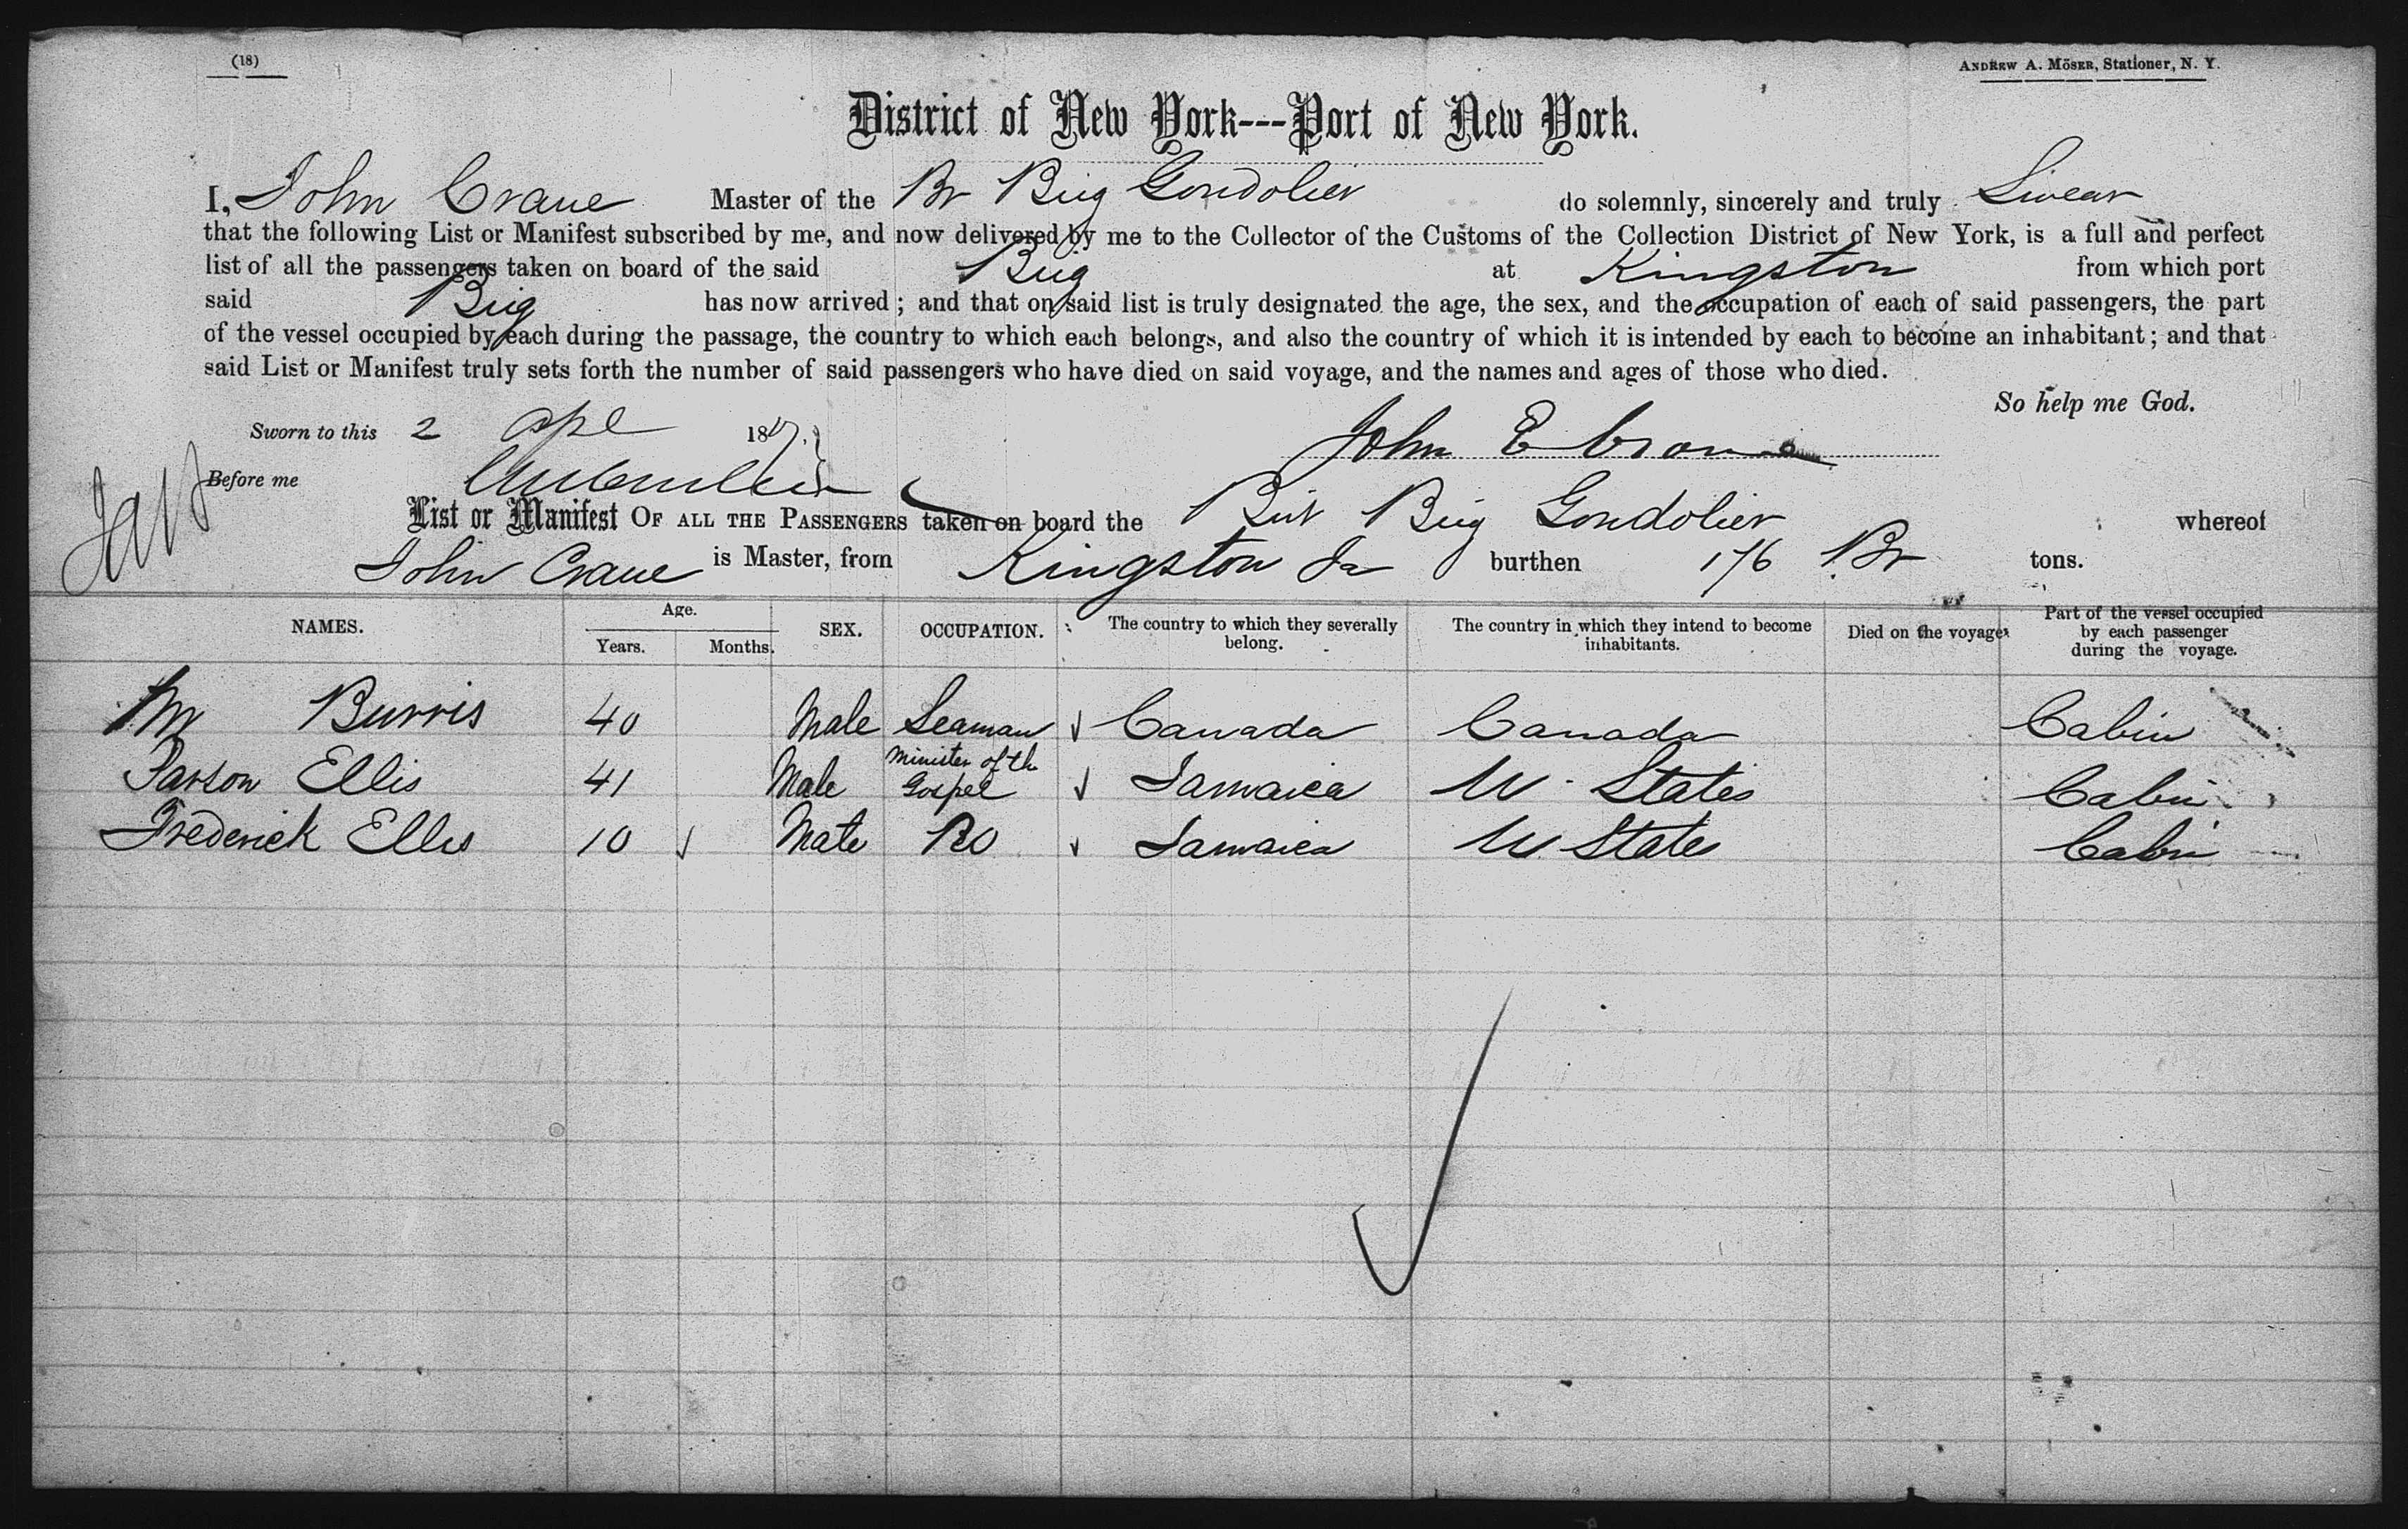 (18)
ANDREW A. MÖSER, Stationer, N. Y.
District of New York---Port of New York.
I, John Crane Master of the Br Brig Gondolier do solemnly, sincerely and truly Swear
that the following List or Manifest subscribed by me, and now delivered by me to the Collector of the Customs of the Collection District of New York, is a full and perfect
list of all the passengers taken on board of the said Brig at Kingston from which port
said Brig has now arrived; and that on said list is truly designated the age, the sex, and the occupation of each of said passengers, the part
of the vessel occupied by each during the passage, the country to which each belongs, and also the country of which it is intended by each to become an inhabitant; and that
said List or Manifest truly sets forth the number of said passengers who have died on said voyage, and the names and ages of those who died.
So help me God.
Sworn to this 2 Apl 18
John E Crane
Before me
List or Manifest OF ALL THE PASSENGERS taken on board the Brit Brig Gondolier whereof
John Crane is Master, from Kingston Ja burthen 176 Br tons.
NAMES. Age. Years. Months. SEX. OCCUPATION. The country to which they severally belong. The country in which they intend to become inhabitants. Died on the voyage. Part of the vessel occupied by each passenger during the voyage.
Mr Burris 40 Male Seaman Canada Canada Cabin
Parson Ellis 41 Male Minister of the Gospel Jamaica U. States Cabin
Frederick Ellis 10 Male Jamaica U. States Cabin